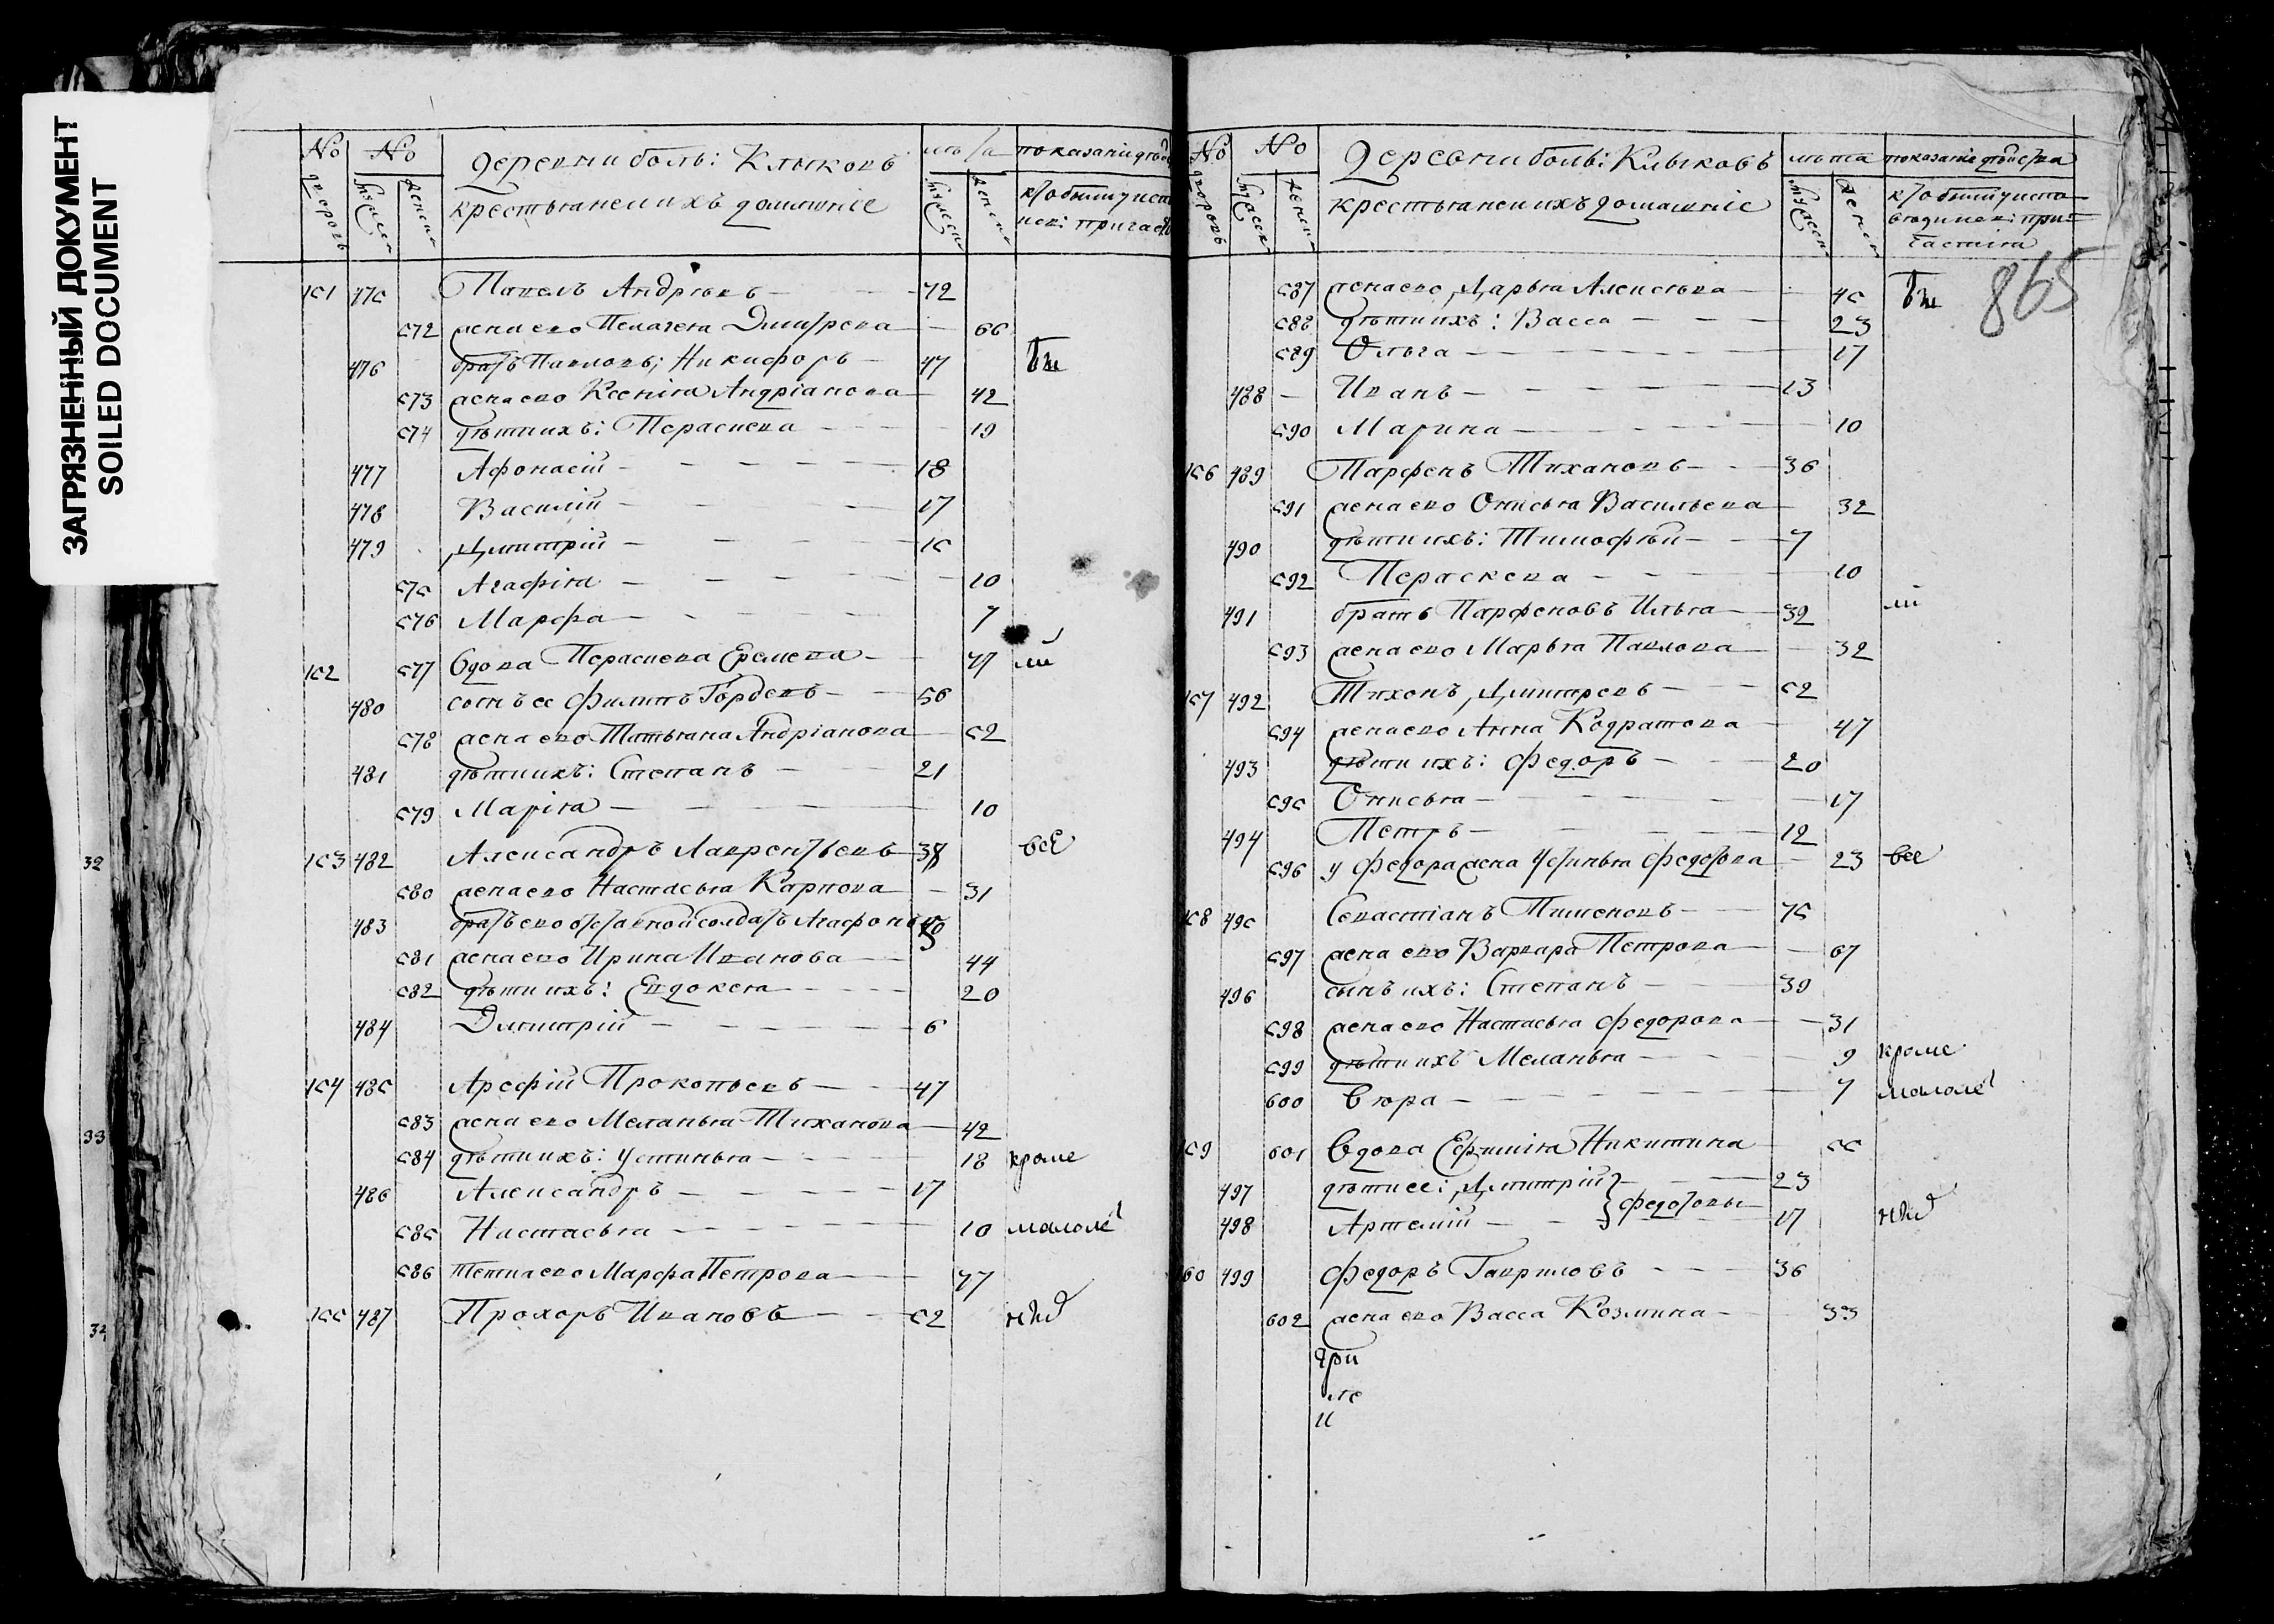 ЗАГРЯЗНЕННЫЙ ДОКУМЕНТ
SOILED DOCUMENT
32
33
34
No No деревни боль: Клыковъ
дворовъ
крестьяне и ихъ домашніе
151 475 Павелъ Андрѣевъ 72
572 жена ево Пелагея Дмитрева 66
476 братъ Павловъ; Никифоръ 47
573 жена ево Ксенія Андріанова 42
574 дѣти ихъ: Пераскева 19
477 Афонасій 18
478 Василій 17
479 Дмитрій 15
575 Агафія 10
576 Марфа 7
152 577 вдова Пераскева Еремева 77
480 сынъ ее Филипъ Гордевъ 56
578 жена ево Татьяна Андріанова 52
481 дѣти ихъ: Степанъ 21
579 Марія 10
153 482 Александръ Лаврентьевъ 38 все
580 жена ево Настасья Карпова 31
483 братъ ево отставной солдатъ Агафонъ
581 жена ево Ирина Иванова 44
582 дѣти ихъ: Евдокея 20
484 Димитрій 6
154 485 Арефій Прокопьевъ 47
583 жена ево Меланья Тиханова 42
584 дѣти ихъ: Устинья 18 кроме
486 Александръ 17
585 Настасья 10 малолѣ
586 тетка ево Марфа Петрова 77
155 487 Прохоръ Ивановъ 52
No No Деревни боль: Клыковъ лѣта показаніе дѣйства
дворовъ
крестьяне и ихъ домашніе
кто былъ у исповѣди и св: причастия
865
587 жена ево Дарья Алексѣева 45
588 дѣти ихъ: Васса 23
589 Ольга 17
488 Иванъ 13
590 Марина 10
156 489 Парфенъ Тихановъ 36
591 жена ево Онисья Васильева 32
490 дѣти ихъ: Тимофѣй 7
592 Пераскева 10
491 братъ Парфеновъ Илья 32
593 жена ево Марья Павлова 32
157 492 Тихонъ Дмитревъ 52
594 жена ево Анна Кодратова 47
493 дѣти ихъ: Федоръ 20
595 Онисья 17
494 Петръ 12
596 у Федора жена Устинья Федотова 23 все
158 495 Севастіанъ Тимоѳевъ 75
597 жена ево Варвара Петрова 67
496 сынъ ихъ: Степанъ 39
598 жена ево Настасья Федорова 31
599 дѣти ихъ Меланья 9 кроме
600 Вѣра 7 малолѣ
159 601 Вдова Ефимія Никитина 55
497 дѣти ее: Дмитрій 23
Федотовы
498 Артемій 17
160 499 Федоръ Гавриловъ 36
602 жена ево Васса Козмина 33
гри
ге
и